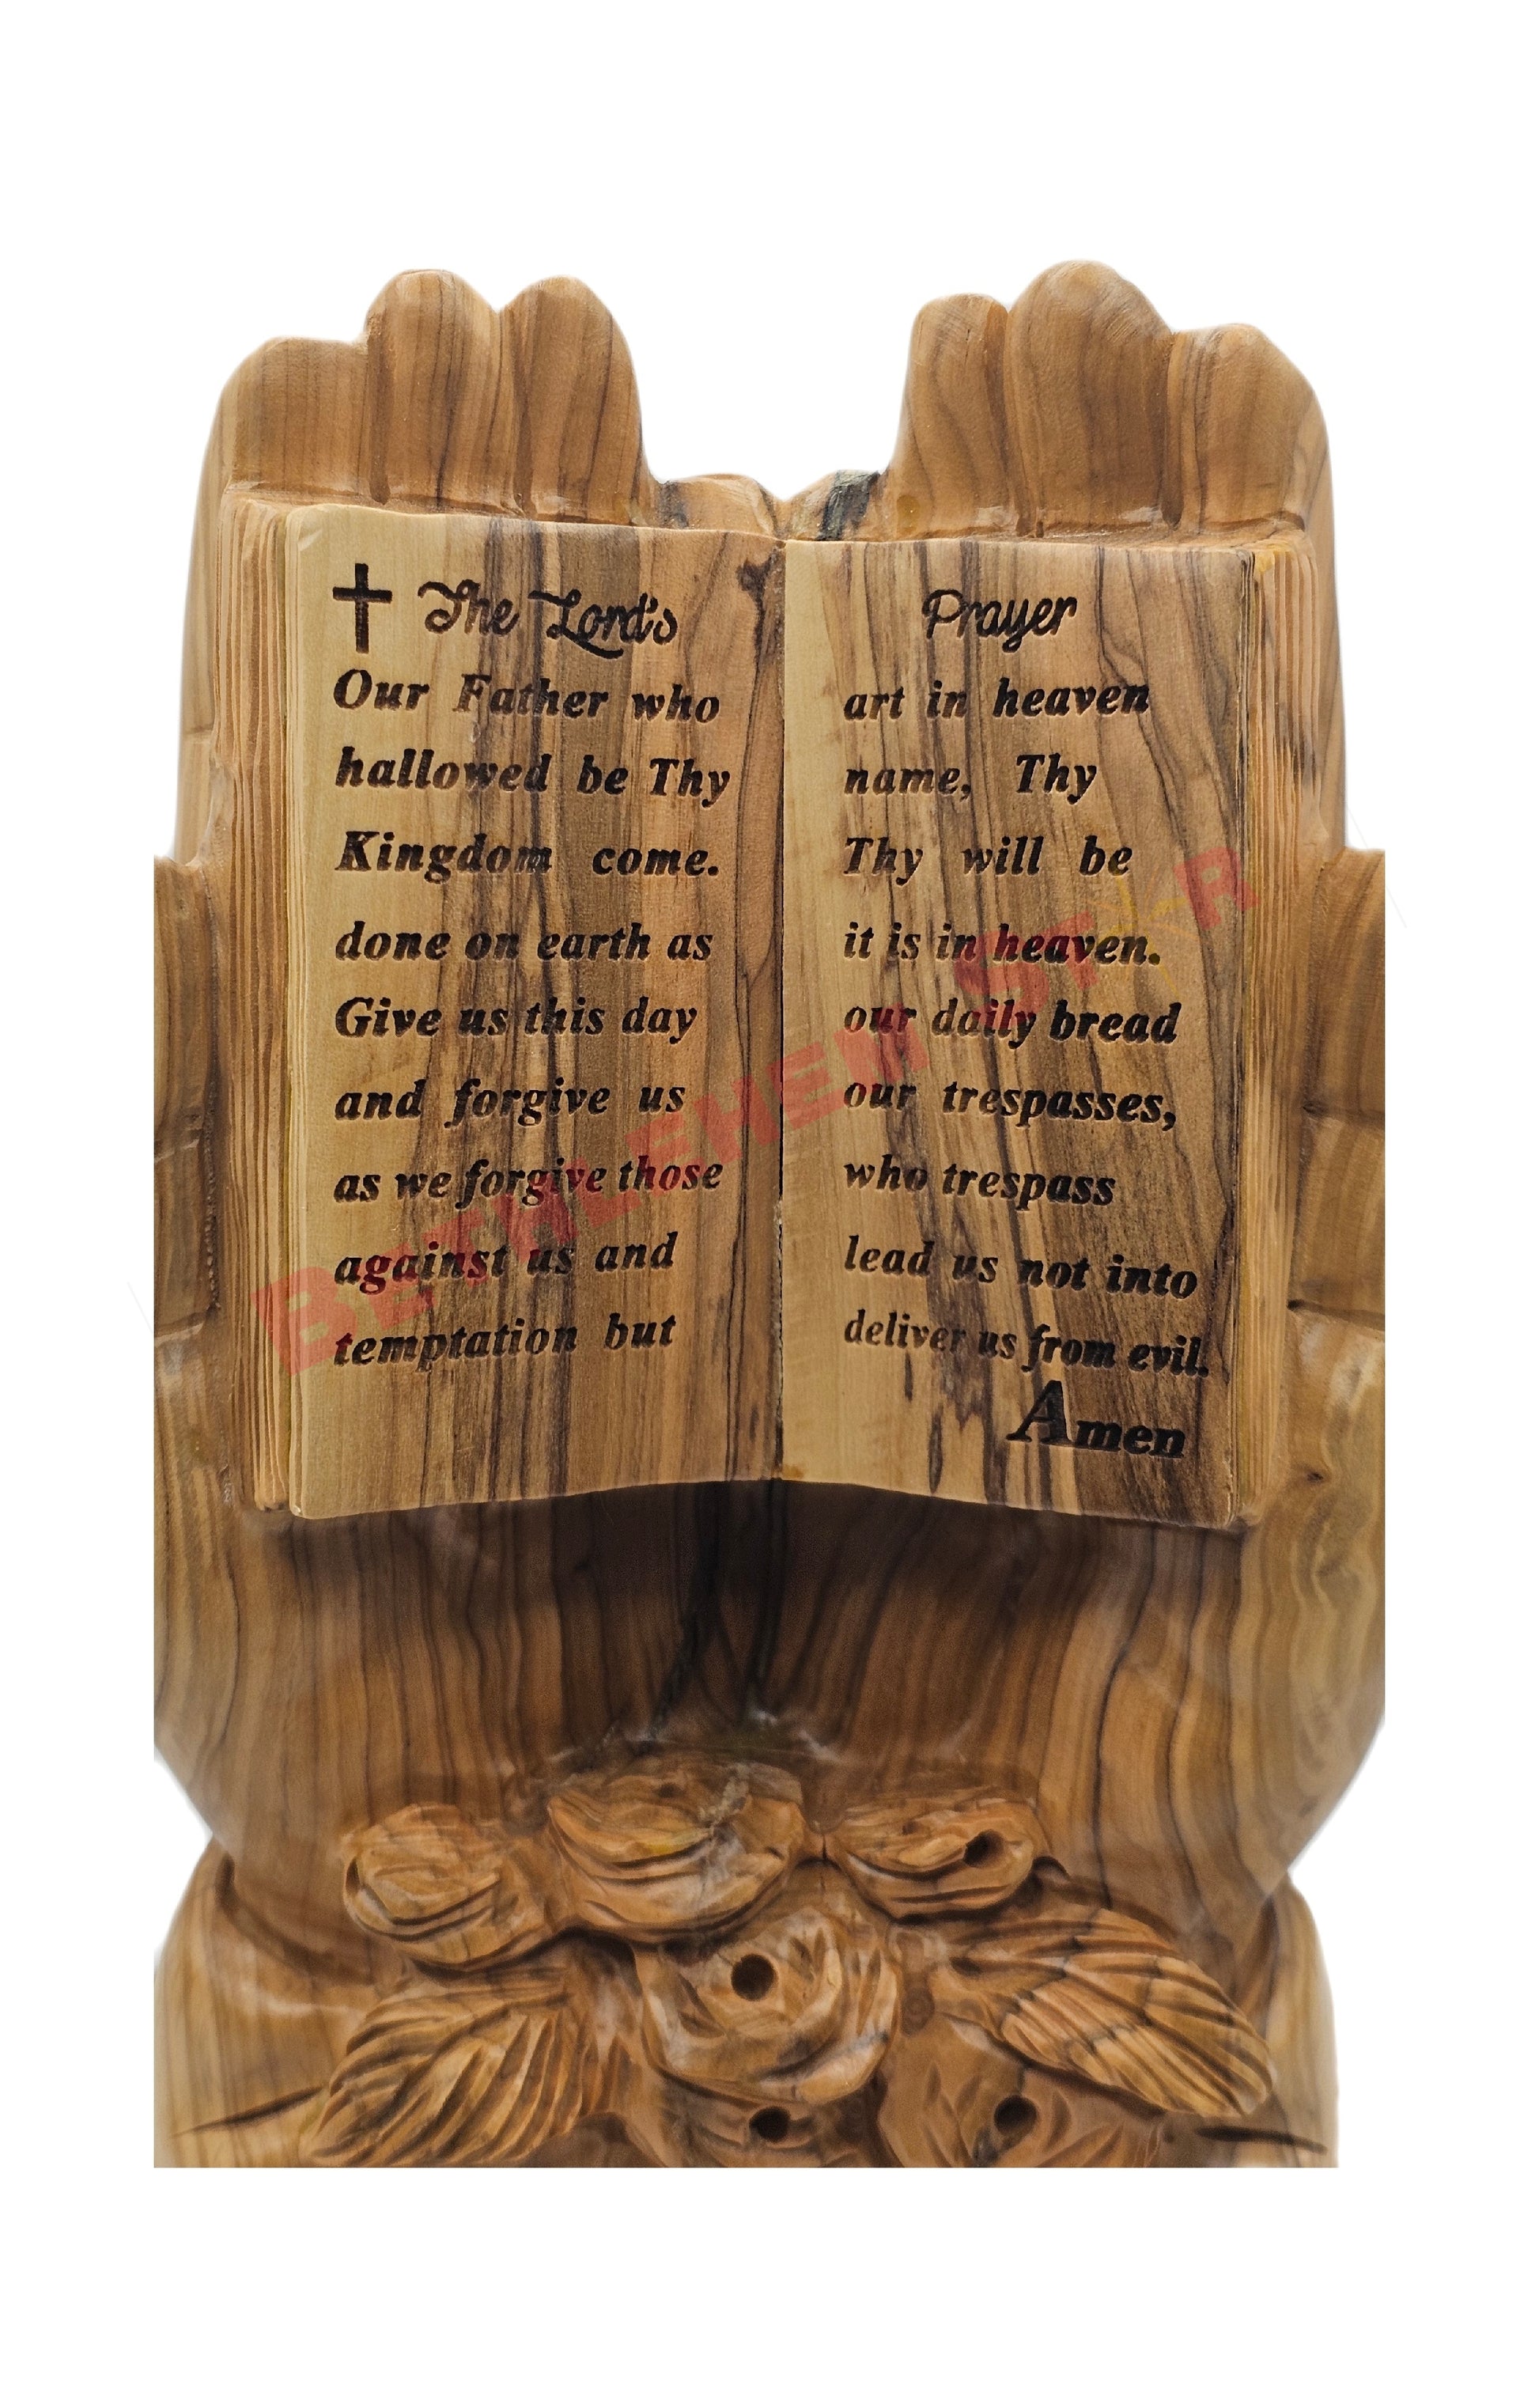 The Lord's Prayer
Our Father who art in heaven
hallowed be Thy name, Thy
Kingdom come. Thy will be
done on earth as it is in heaven.
Give us this day our daily bread
and forgive us our trespasses,
as we forgive those who trespass
against us and lead us not into
temptation but deliver us from evil.
Amen
BETHLEHEM STAR